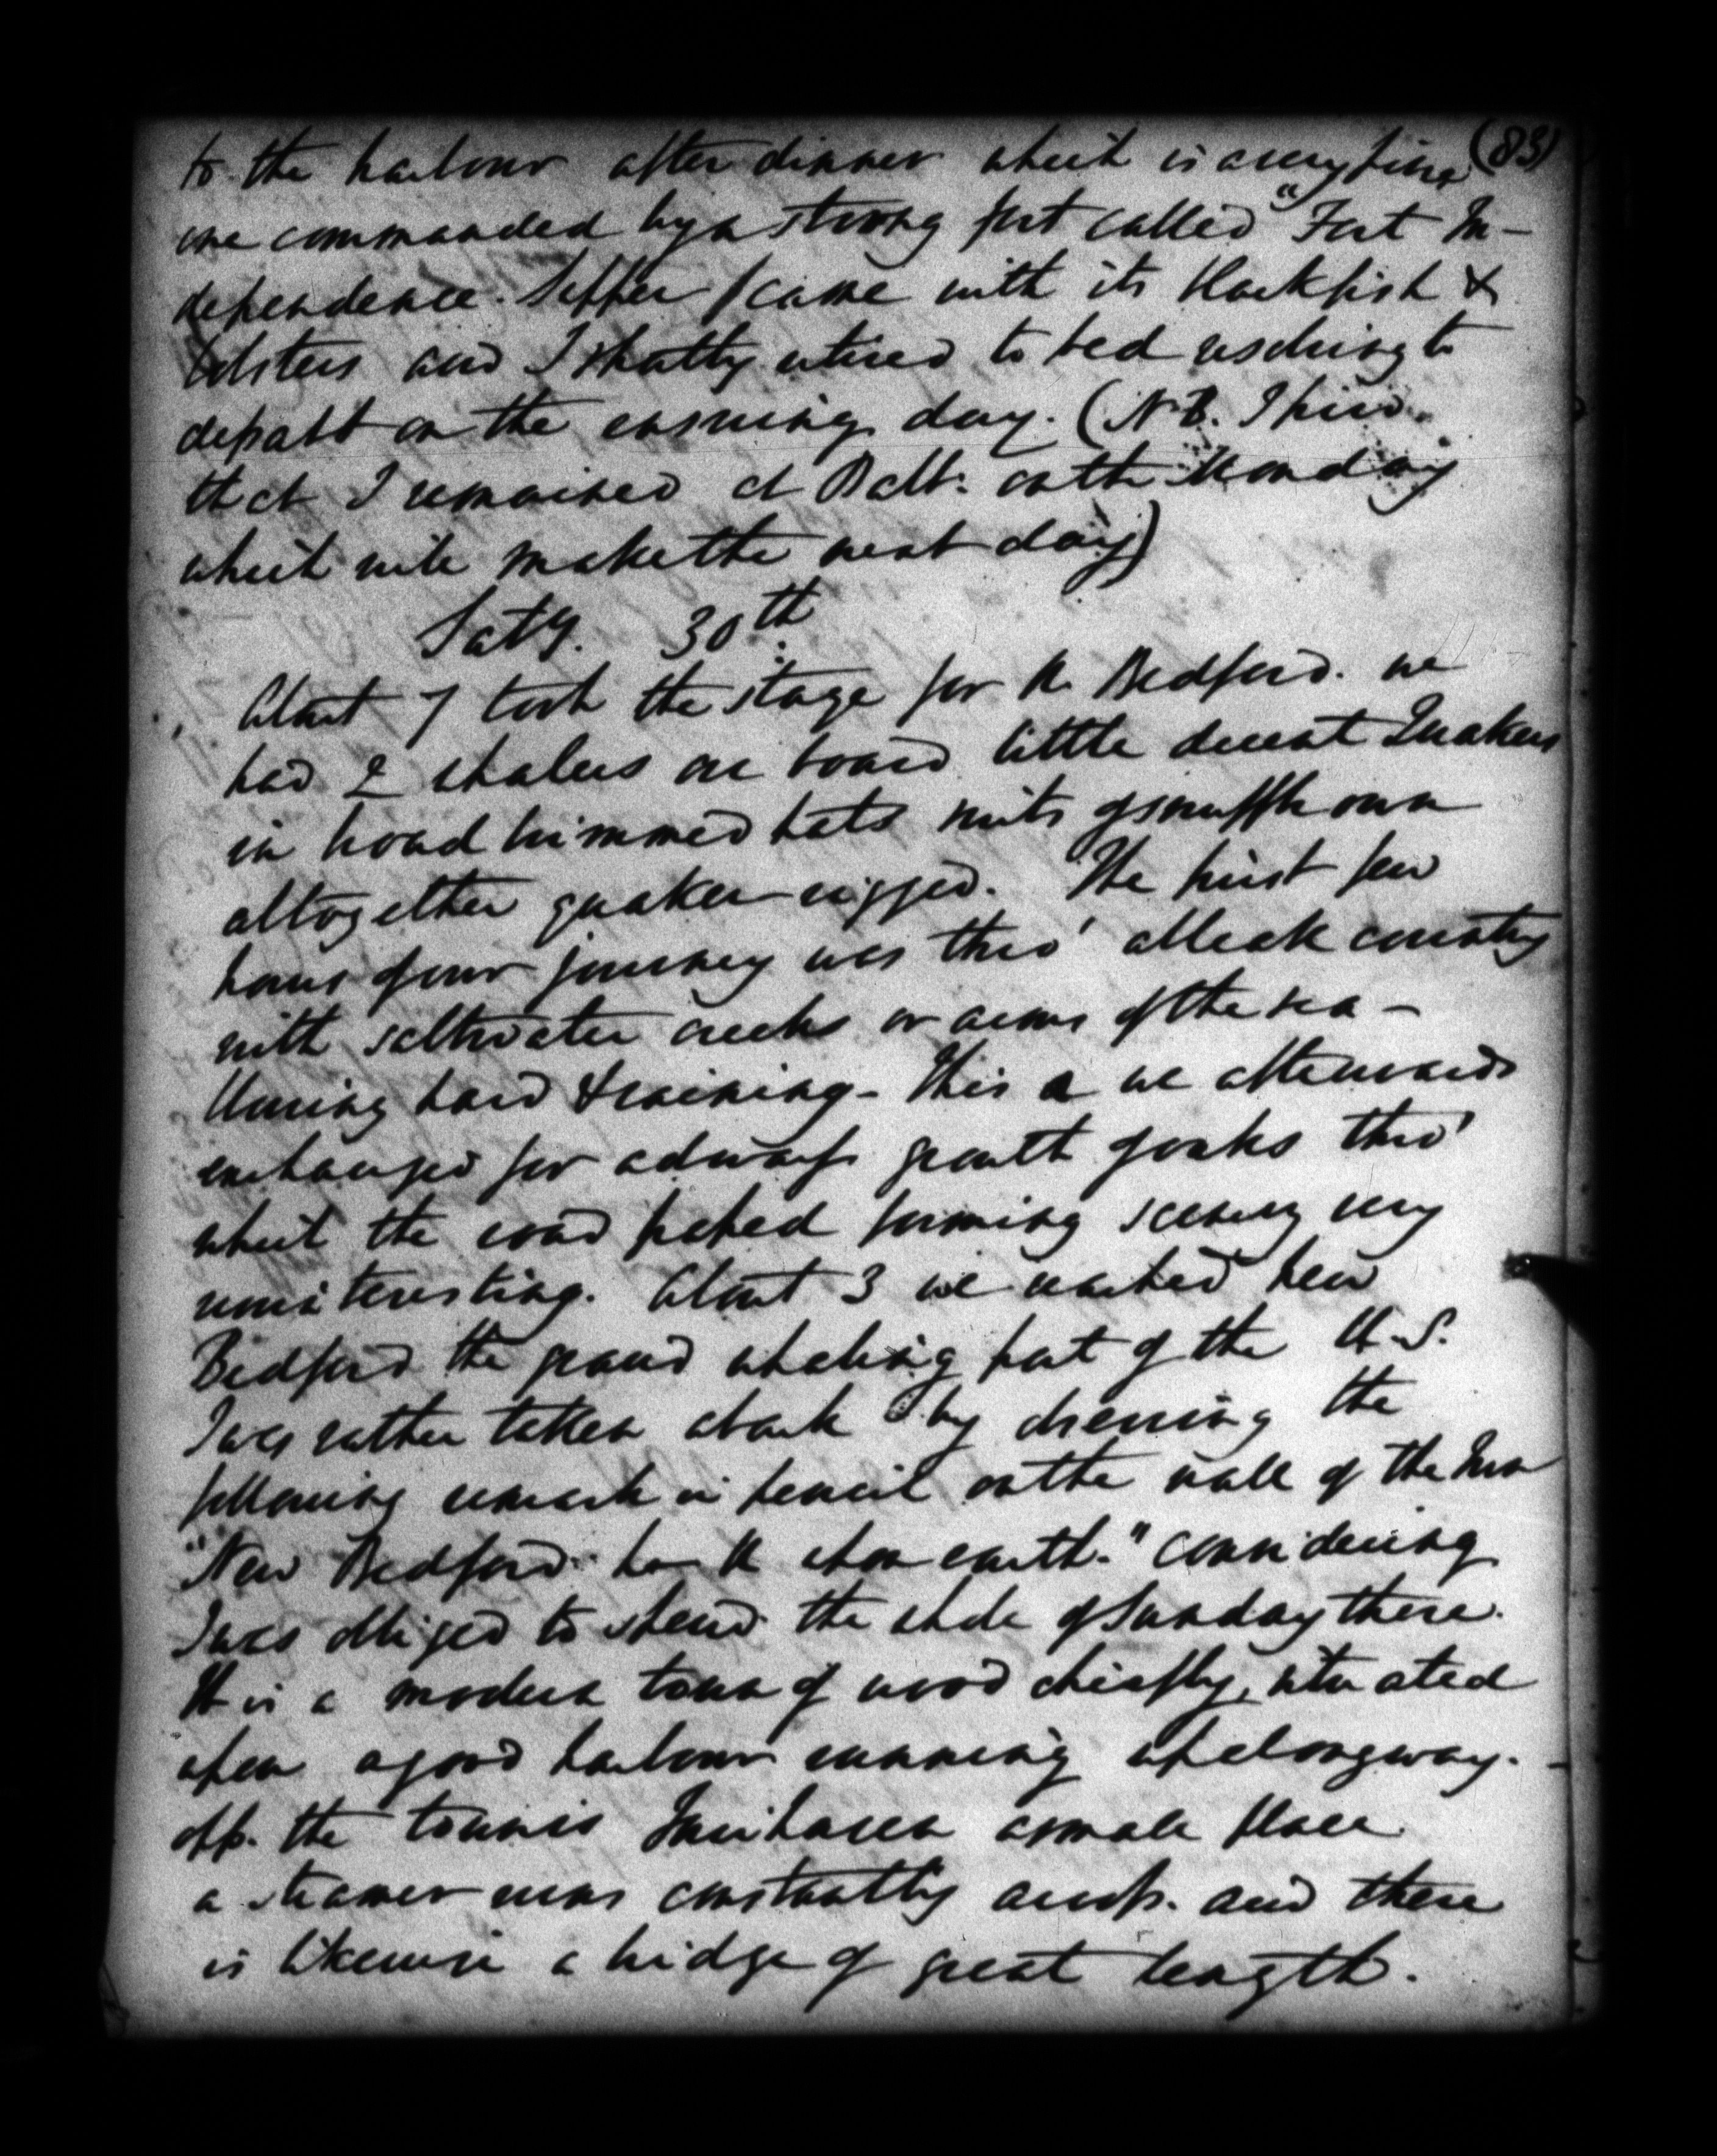 (83)
to the harbour after dinner which is a very fine
one commanded by a strong fort called "Fort In-
dependence. Supper came with its blackfish &
lobsters and I shortly retired to bed resolving to
depart on the ensuing day. (N.B. I find
that I remained at Balt. on the Monday
which will make the next day)
Saty. 30th
About 7 took the stage for N. Bedford. we
had 2 whalers on board little decent Quakers
in broad brimmed hats suits of snuff brown
altogether quaker-rigged. The first few
hours of our journey was thro' a bleak country
with saltwater creeks or arms of the sea –
blowing hard & raining – This we afterwards
exchanged for a dwarf growth of oaks thro'
which the road passed forming scenery very
uninteresting. About 3 we reached New
Bedford the grand whaling port of the U.S.
I was rather taken aback by observing the
following remark in pencil on the wall of the Inn
"New Bedford upon earth." considering
I was obliged to spend the whole of Sunday there.
It is a modern town of wood chiefly, situated
upon a good harbour running up a long way.
opp. the town is Fairhaven a small place
a steamer runs constantly across. and there
is likewise a bridge of great length.